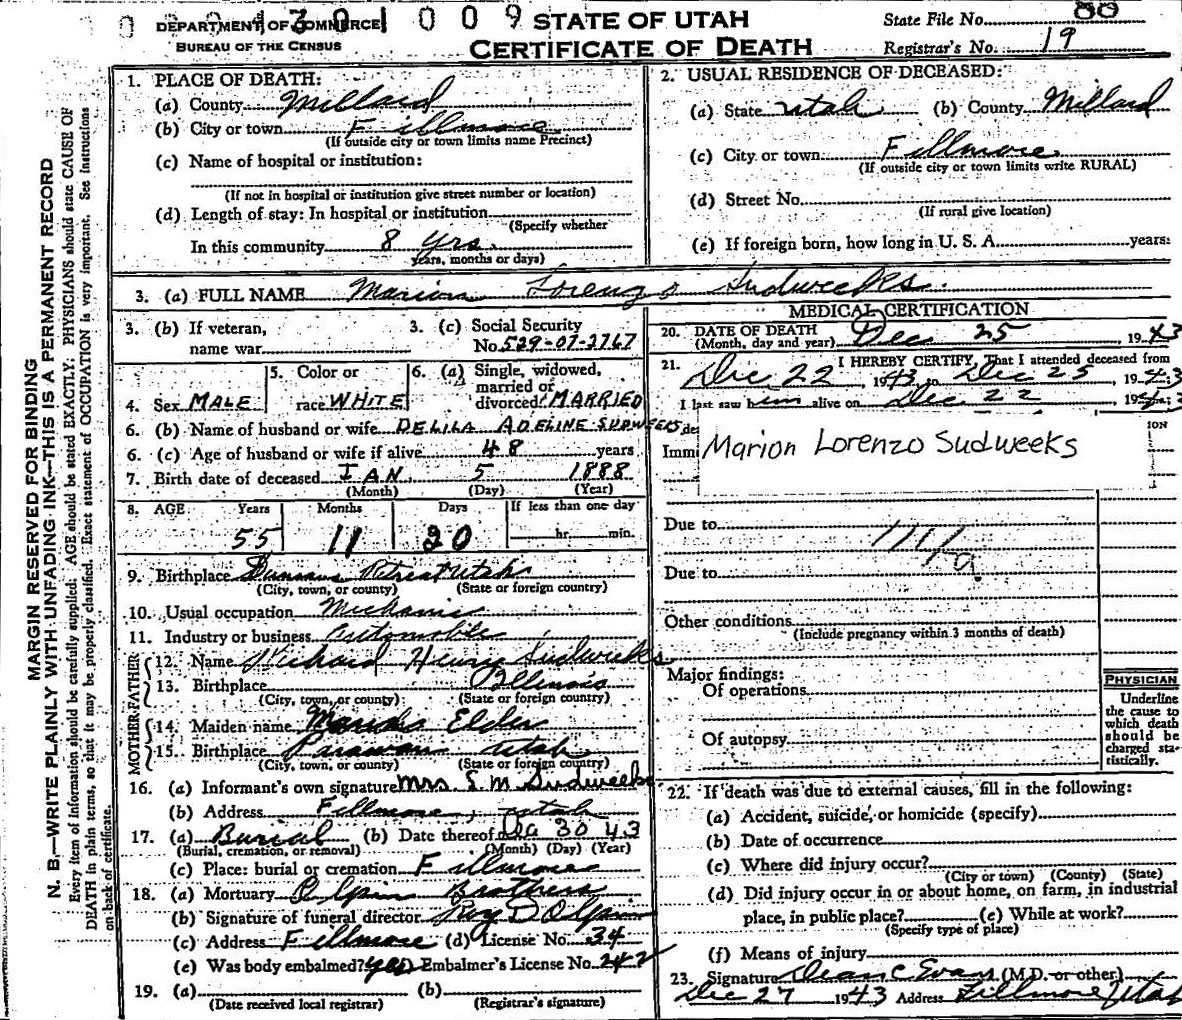 0 2 4301009 STATE OF UTAH State File No. 88
DEPARTMENT OF COMMERCE
BUREAU OF THE CENSUS CERTIFICATE OF DEATH Registrar's No. 19
MARGIN RESERVED FOR BINDING
N. B.—WRITE PLAINLY WITH UNFADING INK—THIS IS A PERMANENT RECORD
Every item of information should be carefully supplied. AGE should be stated EXACTLY. PHYSICIANS should state CAUSE OF
DEATH in plain terms, so that it may be properly classified. Exact statement of OCCUPATION is very important. See instructions
on back of certificate.
1. PLACE OF DEATH:
(a) County Millard
(b) City or town Fillmore
(If outside city or town limits name Precinct)
(c) Name of hospital or institution:
(If not in hospital or institution give street number or location)
(d) Length of stay: In hospital or institution
(Specify whether
In this community 8 yrs.
years, months or days)
2. USUAL RESIDENCE OF DECEASED:
(a) State Utah (b) County Millard
(c) City or town Fillmore
(If outside city or town limits write RURAL)
(d) Street No.
(If rural give location)
(e) If foreign born, how long in U. S. A. years.
3. (a) FULL NAME Marion Lorenzo Sudweeks
3. (b) If veteran,
name war
3. (c) Social Security
No. 529-07-2767
4. Sex MALE
5. Color or
race WHITE
6. (a) Single, widowed,
married or
divorced MARRIED
6. (b) Name of husband or wife DELILA ADELINE SUDWEEKS
6. (c) Age of husband or wife if alive 48 years
7. Birth date of deceased JAN. 5 1888
(Month) (Day) (Year)
8. AGE Years Months Days If less than one day
55 11 20 hr. min.
9. Birthplace Duncans Retreat Utah
(City, town, or county) (State or foreign country)
10. Usual occupation Mechanic
11. Industry or business Automobile
FATHER
12. Name Richard Henry Sudweeks
13. Birthplace Illinois
(City, town, or county) (State or foreign country)
MOTHER
14. Maiden name Elder
15. Birthplace Parawan Utah
(City, town, or county) (State or foreign country)
16. (a) Informant's own signature Mrs. S. M. Sudweeks
(b) Address Fillmore, Utah
17. (a) Burial (b) Date thereof Dec 30 43
(Burial, cremation, or removal) (Month) (Day) (Year)
(c) Place: burial or cremation Fillmore
18. (a) Mortuary Olpin Brothers
(b) Signature of funeral director Roy D Olpin
(c) Address Fillmore (d) License No. 34
(e) Was body embalmed? yes (f) Embalmer's License No. 242
19. (a) (b)
(Date received local registrar) (Registrar's signature)
MEDICAL CERTIFICATION
20. DATE OF DEATH
(Month, day and year) Dec 25, 1943
21. I HEREBY CERTIFY, That I attended deceased from
Dec 22, 1943 to Dec 25, 1943
I last saw him alive on Dec 22, 1943
de
ION
Immi
Marion Lorenzo Sudweeks
Due to
Due to
Other conditions
(Include pregnancy within 3 months of death)
Major findings:
Of operations
Of autopsy
PHYSICIAN
Underline
the cause to
which death
should be
charged sta-
tistically.
22. If death was due to external causes, fill in the following:
(a) Accident, suicide, or homicide (specify)
(b) Date of occurrence
(c) Where did injury occur?
(City or town) (County) (State)
(d) Did injury occur in or about home, on farm, in industrial
place, in public place? (e) While at work?
(Specify type of place)
(f) Means of injury
23. Signature Dean C Evans (M.D. or other)
Dec 27 1943 Address Fillmore Utah